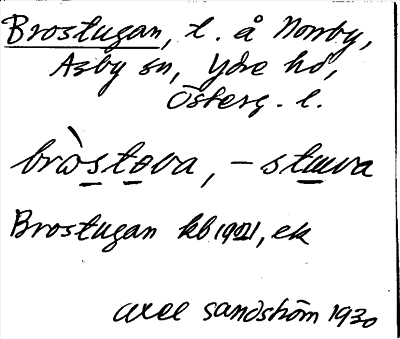 Brostugan, t. å Norrby,
Asby sn, Ydre hd,
Österg. l.
bròstova, – stuva
Brostugan kb 1921, ek
Axel Sandström 1930